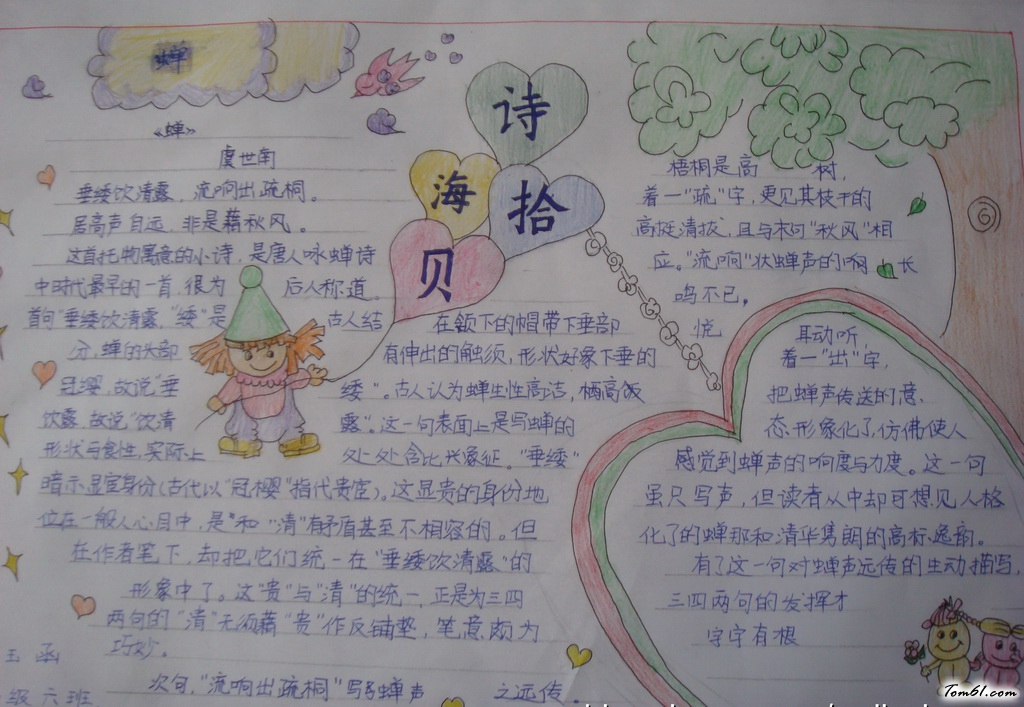 蝉
诗
海
拾
贝
《蝉》
虞世南
垂緌饮清露,流响出疏桐。
居高声自远,非是藉秋风。
这首托物寓意的小诗,是唐人咏蝉诗
中时代最早的一首,很为 后人称道。
首句"垂緌饮清露,"緌"是 古人结
在领下的帽带下垂部
分,蝉的头部 有伸出的触须,形状好象下垂的
冠缨,故说"垂 緌"。古人认为蝉生性高洁,栖高饭
饮露,故说"饮清 露"。这一句表面上是写蝉的
形状与食性,实际上 处处含比兴象征。"垂緌"
暗示显宦身份(古代以"冠樱"指代贵宦)。这显贵的身份地
位在一般人心目中,是"和"清"有矛盾甚至不相容的。但
在作者笔下,却把它们统一在"垂緌饮清露"的
形象中了。这"贵"与"清"的统一,正是为三四
两句的"清"无须藉"贵"作反铺垫,笔意颇为
巧妙。
次句,"流响出疏桐"写蝉声 之远传。
玉函
级六班
梧桐是高 树,
着一"疏"字,更见其枝干的
高挺清拔,且与末句"秋风"相
应。"流响"状蝉声的响 长
鸣不已,
悦 耳动听,
着一"出"字,
把蝉声传送的意
态形象化了,仿佛使人
感觉到蝉声的响度与力度。这一句
虽只写声,但读者从中却可想见人格
化了的蝉那和清华隽朗的高标逸韵。
有了这一句对蝉声远传的生动描写,
三四两句的发挥才
字字有根
Tom61.com